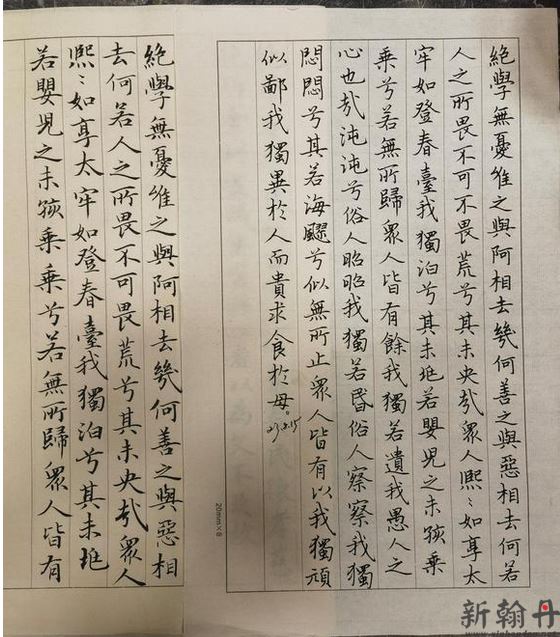 絕學無憂維之與阿相去幾何善之與惡相去何若
人之所畏不可不畏荒兮其未央哉衆人熙〻如享太
牢如登春臺我獨泊兮其未垗若嬰兒之未孩乘
乘兮若無所歸衆人皆有餘我獨若遺我愚人之
心也哉沌沌兮俗人昭昭我獨若昏俗人察察我獨
悶悶兮其若海飂兮似無所止衆人皆有以我獨頑
似鄙我獨異於人而貴求食於母。
20mm×8
絕學無憂維之與阿相去幾何善之與惡相
去何若人之所畏不可畏荒兮其未央哉衆人
熙〻如享太牢如登春臺我獨泊兮其未垗
若嬰兒之未孩乘乘兮若無所歸衆人皆有
新翰丹